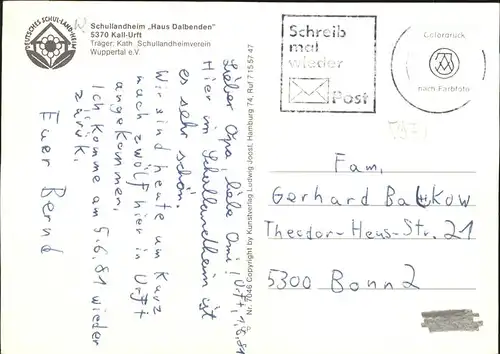 DEUTSCHES SCHUL-LAND-HEIM
Schullandheim „Haus Dalbenden"
5370 Kall-Urft
Träger: Kath. Schullandheimverein
Wuppertal e.V.
Schreib
mal
wieder
Post
Colordruck
nach Farbfoto
Urft, 1.6.81
Lieber Opa, liebe Omi!
Hier im Schullandheim ist
es sehr schön.
Wir sind heute um kurz
nach zwölf hier in Urft
angekommen.
Ich komme am 5.6.81 wieder
zurük.
Euer Bernd
Nr. 7046 Copyright by Kunstverlag Ludwig Joost, Hamburg 74, Ruf 7 15 57 47
Fam.
Gerhard Batkow
Theodor-Heus-Str. 21
5300 Bonn 2